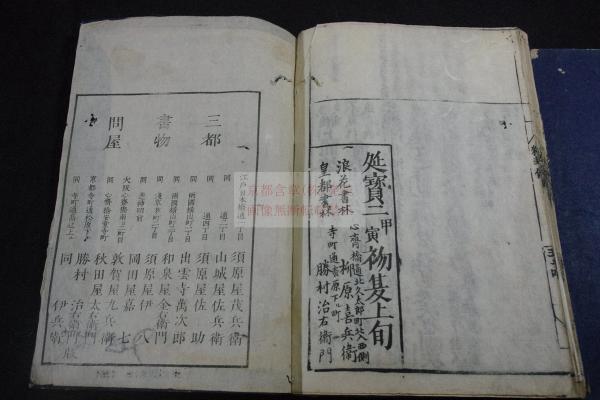 延寶二甲寅初夏上旬
浪花書林
心齊橋通北久太郎町北ヘ入西側
柳原喜兵衛
皇都書林
寺町通松原下ル町
勝村治右衛門
三都
書物
問屋
江戸日本橋通一丁目
須原屋茂兵衛
同 通二丁目
山城屋佐兵衛
同 通四丁目
須原屋佐助
同 両國横山町
出雲寺萬次郎
同 両國横山町三丁目
和泉屋金右衛門
同 淺草茅町二丁目
須原屋伊八
岡田屋嘉七
大阪心齋橋南
敦賀屋九兵衛
同 心齋橋安堂寺町
秋田屋太右衛門
京都寺町通松原下ル
勝村治右衛門
同 寺町通
同 伊兵衛